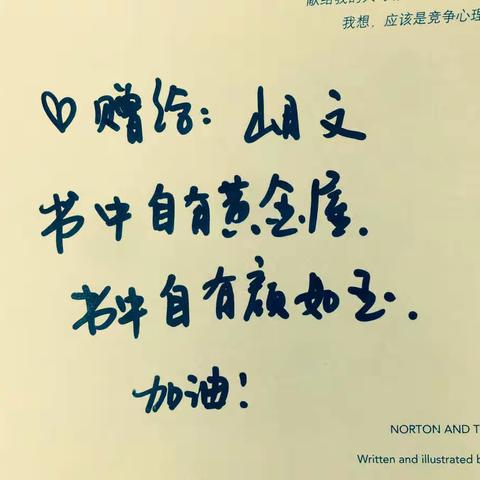 献给我的
我想，应该是竞争心理
♡ 赠给：岄文
书中自有黄金屋.
书中自有颜如玉.
加油！
NORTON AND T
Written and illustrated b